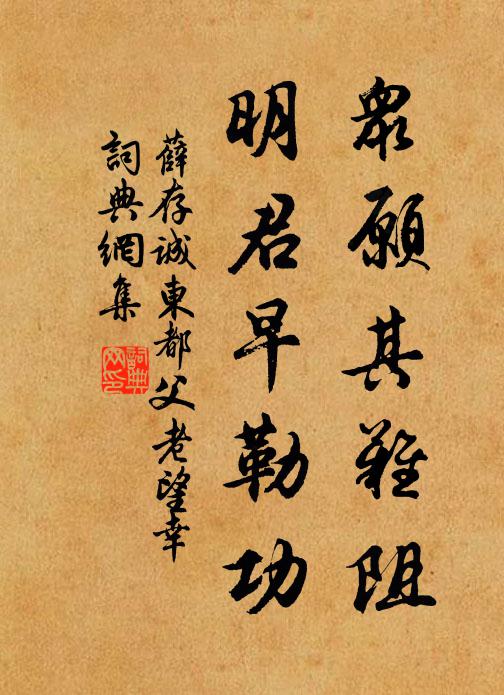 眾願其難阻
明君早勒功
薛存誠東都父老望幸
詞典網集
詞典
网印